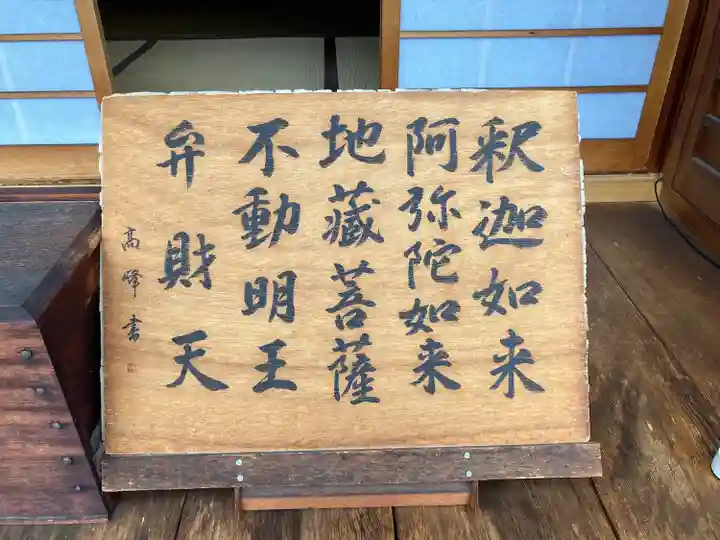 釈迦如来
阿弥陀如来
地藏菩薩
不動明王
弁財天
高峰書